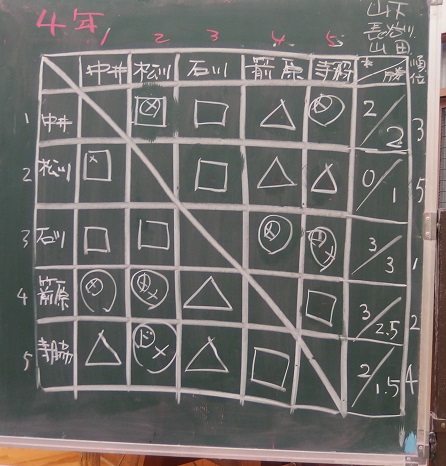 4年
山下
長谷川
山田
1 2 3 4 5
中井 松川 石川 箭原 寺脇 勝 順位
1 中井 メ メ 2/2 3
2 松川 × 0/1 5
3 石川 メ 3/3 1
4 箭原 メ メ× 3/2.5 2
5 寺脇 ド× 2/1.5 4